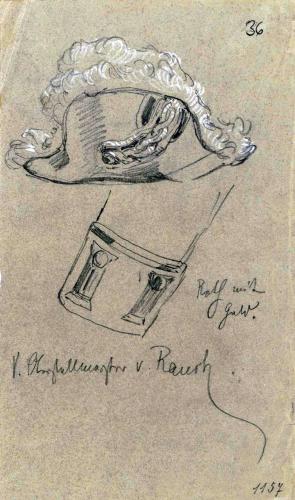 36
Roth mit
Gold.
V. Oberstallmeister v. Rauch.
1157